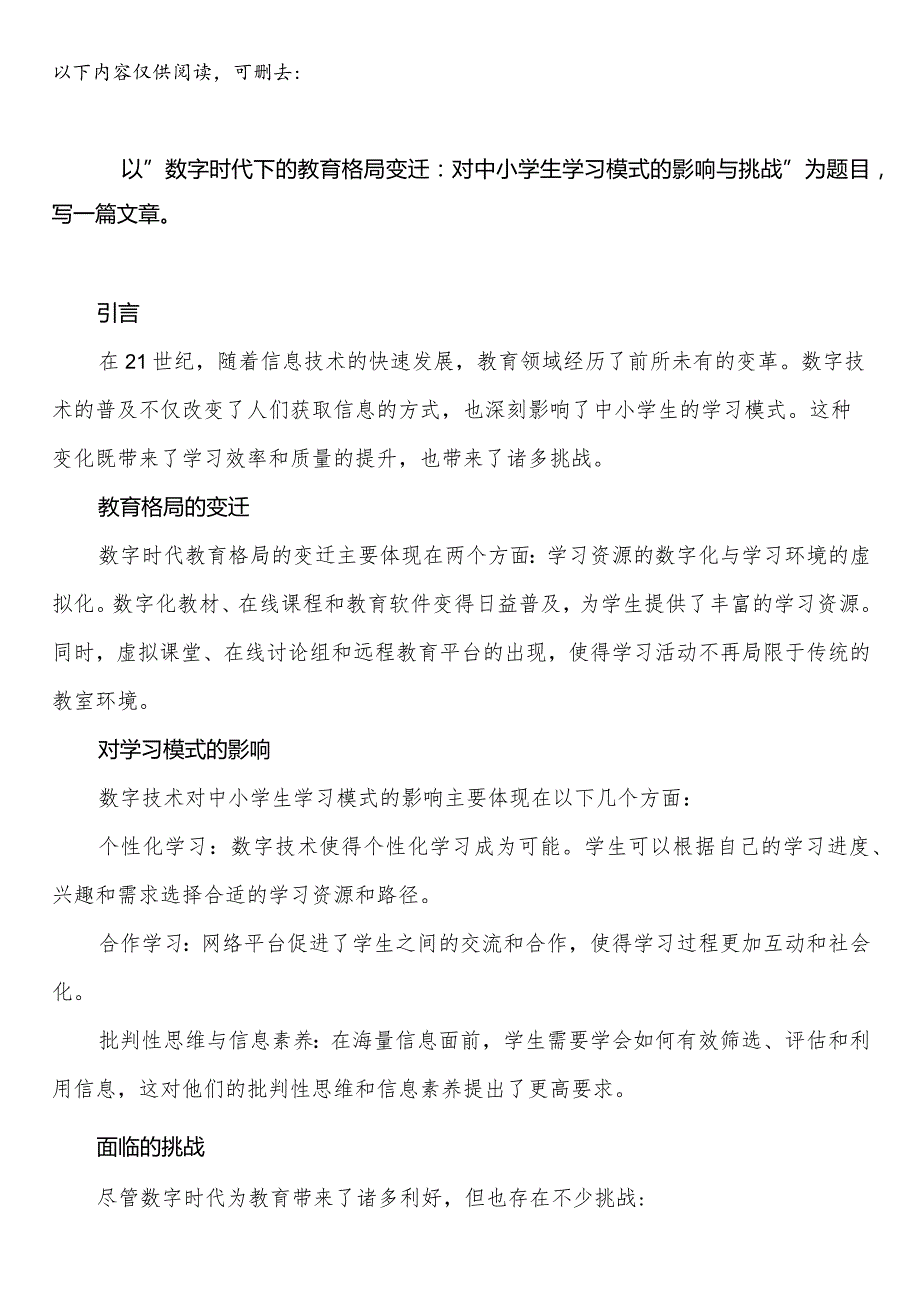 以下内容仅供阅读，可删去：
以”数字时代下的教育格局变迁：对中小学生学习模式的影响与挑战”为题目，
写一篇文章。
引言
在21世纪，随着信息技术的快速发展，教育领域经历了前所未有的变革。数字技
术的普及不仅改变了人们获取信息的方式，也深刻影响了中小学生的学习模式。这种
变化既带来了学习效率和质量的提升，也带来了诸多挑战。
教育格局的变迁
数字时代教育格局的变迁主要体现在两个方面：学习资源的数字化与学习环境的虚
拟化。数字化教材、在线课程和教育软件变得日益普及，为学生提供了丰富的学习资源。
同时，虚拟课堂、在线讨论组和远程教育平台的出现，使得学习活动不再局限于传统的
教室环境。
对学习模式的影响
数字技术对中小学生学习模式的影响主要体现在以下几个方面：
个性化学习：数字技术使得个性化学习成为可能。学生可以根据自己的学习进度、
兴趣和需求选择合适的学习资源和路径。
合作学习：网络平台促进了学生之间的交流和合作，使得学习过程更加互动和社会
化。
批判性思维与信息素养：在海量信息面前，学生需要学会如何有效筛选、评估和利
用信息，这对他们的批判性思维和信息素养提出了更高要求。
面临的挑战
尽管数字时代为教育带来了诸多利好，但也存在不少挑战：